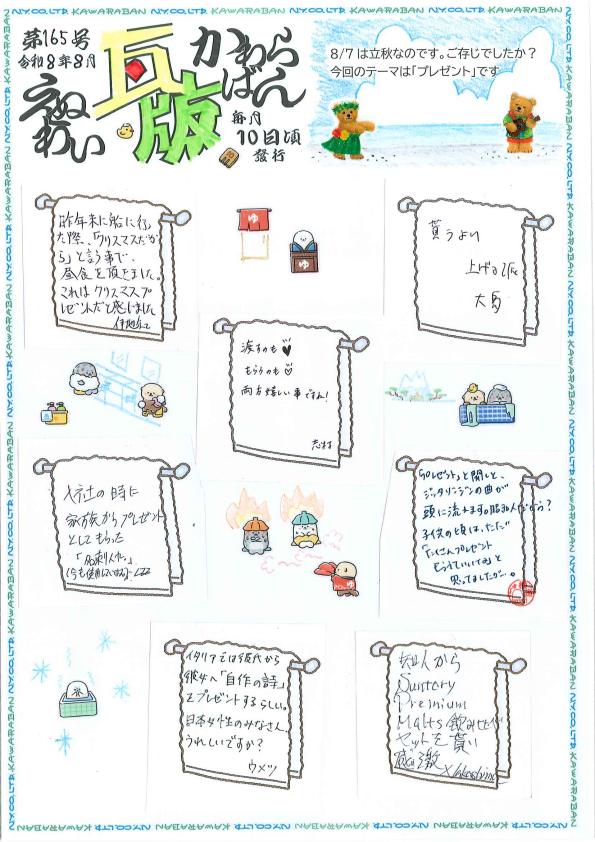 第165号
令和8年8月
えぬわい
瓦版
かわらばん
毎月
10日頃
發行
8/7は立秋なのです。ご存じでしたか？
今回のテーマは「プレゼント」です
昨年末に船に行っ
た際、「クリスマスだか
ら」と言う事で、
昼食を頂きました。
これはクリスマスプ
レゼントだと感じました
ゆ
ゆ
貰うより
上げる派
大馬
渡すのも
もらうのも
両方嬉しい事ですね！
志村
入社の時に
家族からプレゼント
としてもらった
「名刺入れ。」
(今も使用しています)
「プレゼント」と聞くと、
ジッタリンジンの曲が
頭に流れます。昭和人だから？
子供の頃は、ただ
「たくさんプレゼント
もらっていいな」と
思ってましたが…。
ゆ
イタリアでは彼氏から
彼女へ「自作の詩」
をプレゼントするらしい。
日本女性のみなさん、
うれしいですか？
ウメツ
知人から
Suntory
Premium
Malts 飲みせい
セットを貰い
感激
N.Y.CO.,LTD. KAWARABAN